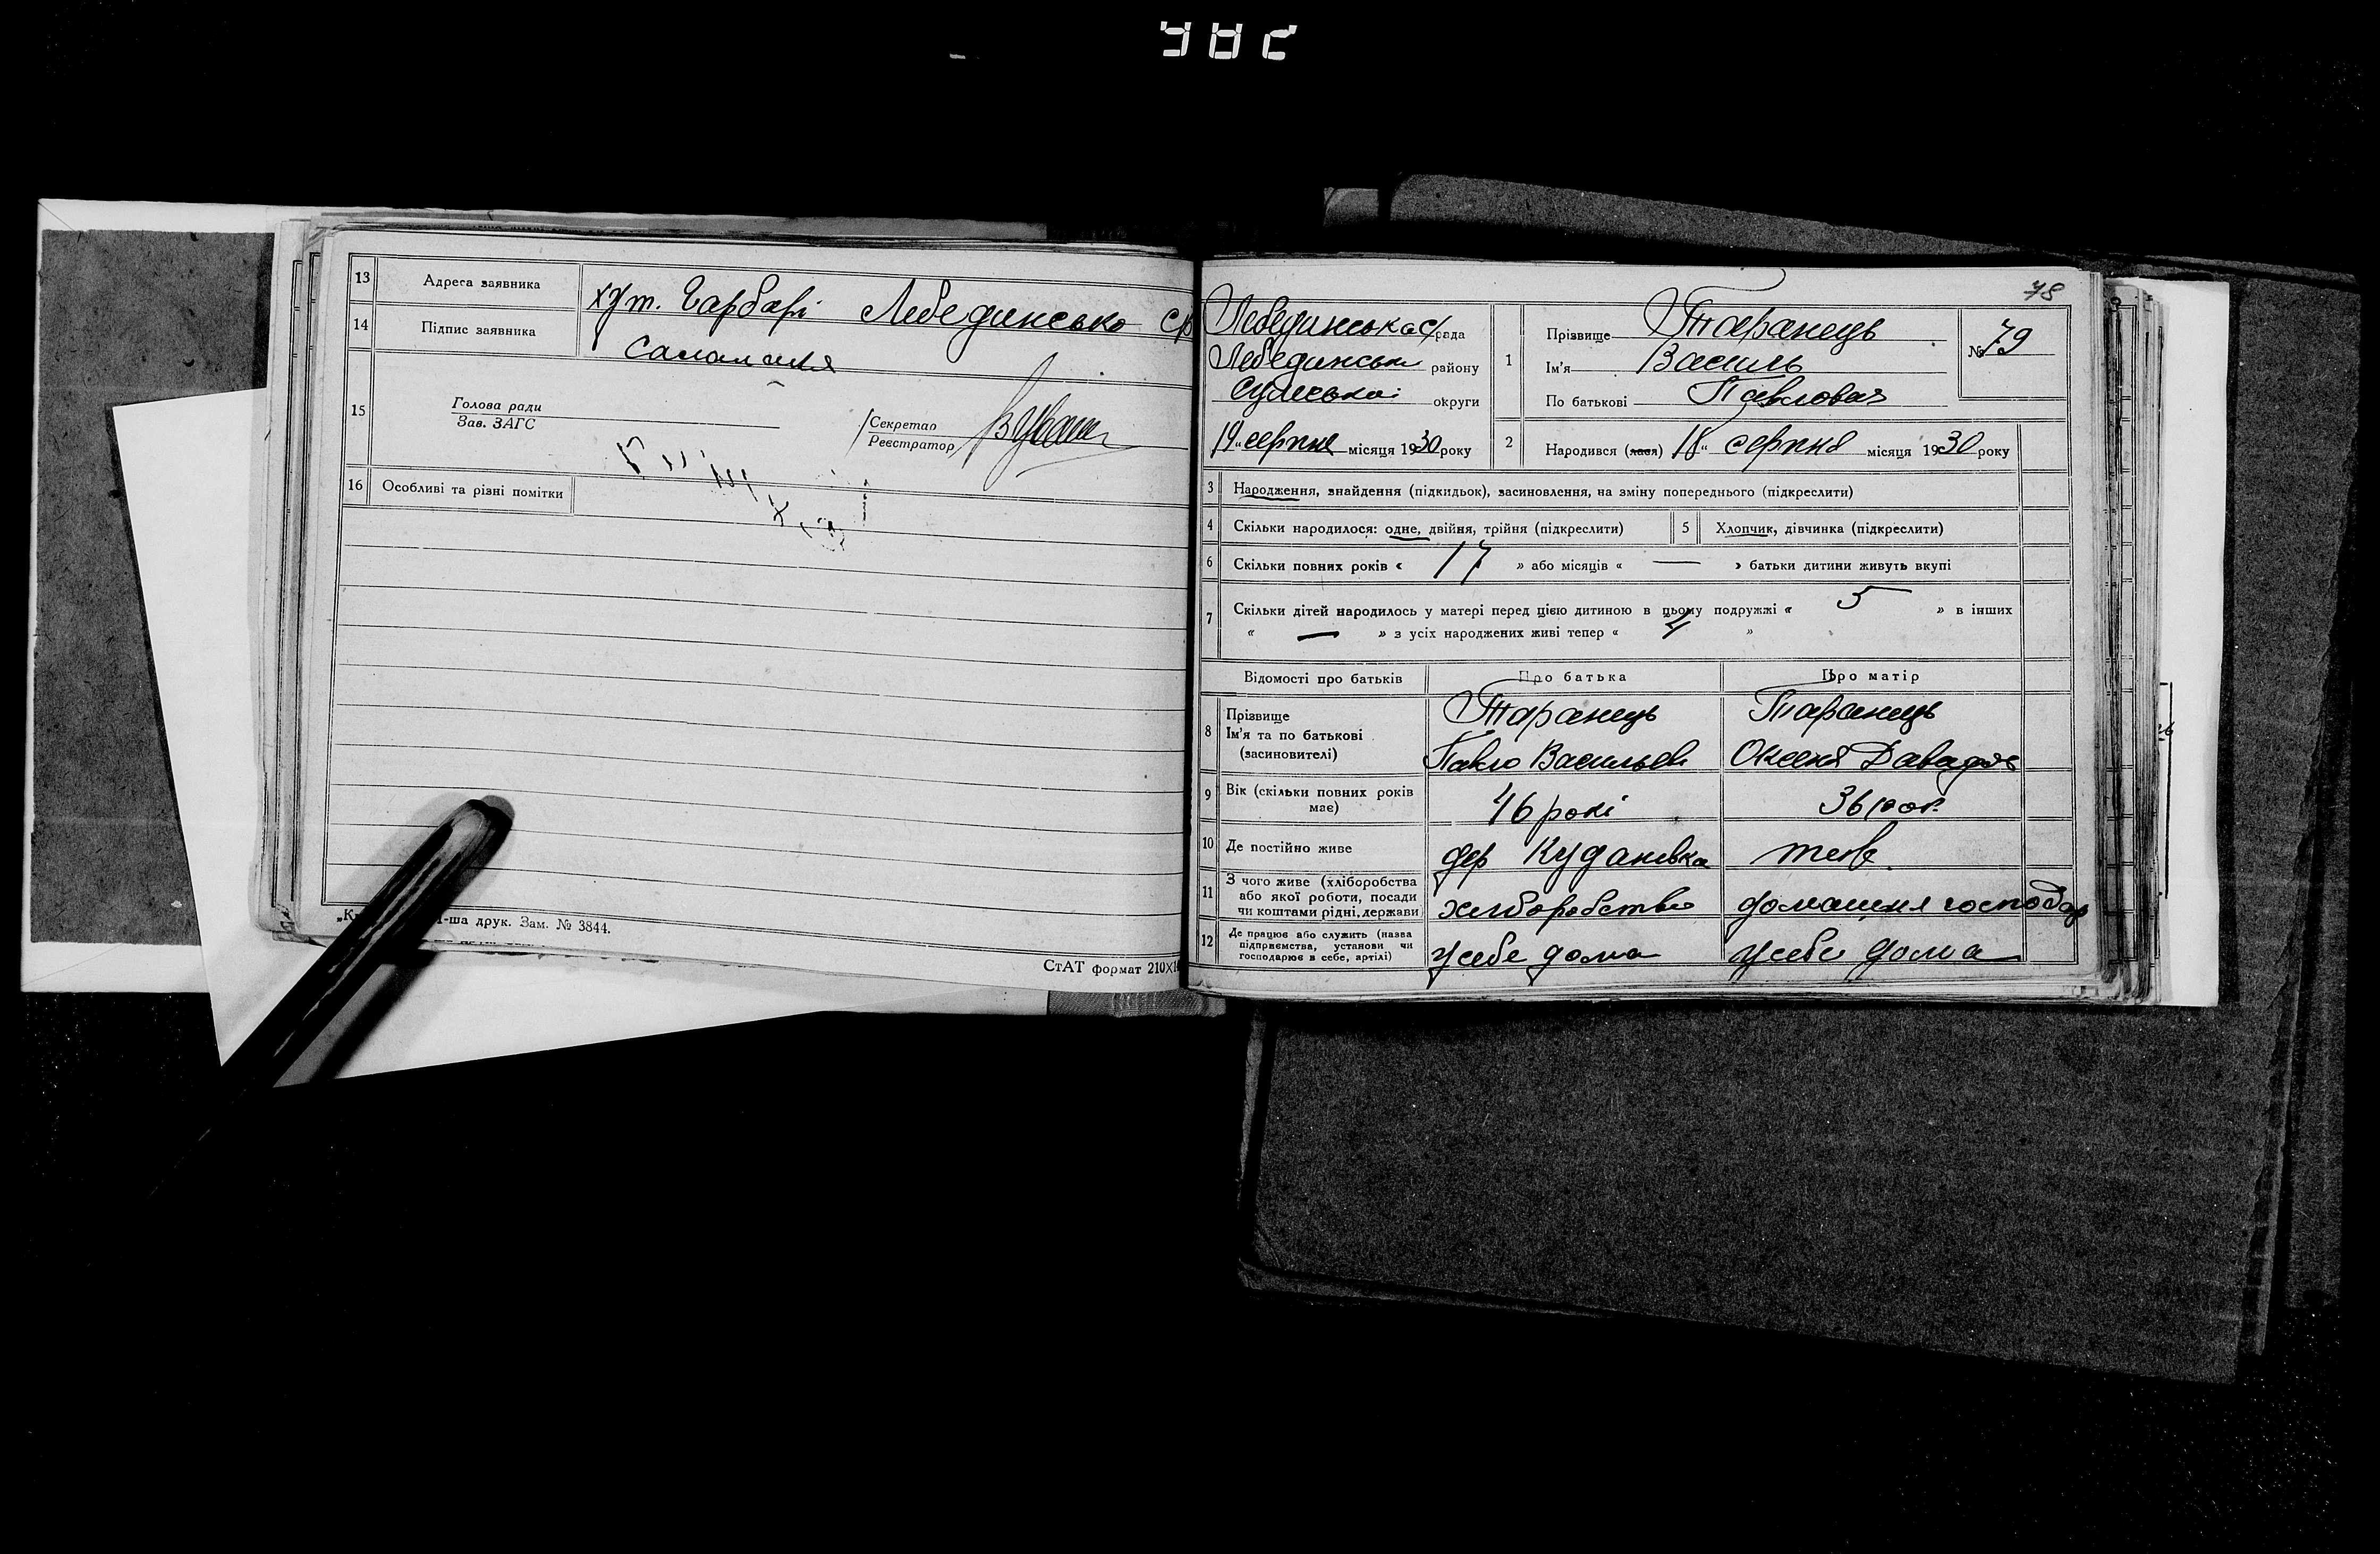 13 Адреса заявника хут. Гарбарі Лебединсько ср
14 Підпис заявника
15 Голова ради
Зав. ЗАГС
Секретар
Реєстратор
16 Особливі та різні помітки
1-ша друк. Зам. № 3844.
СтАТ формат 210×1
78
Лебединська с/рада
Лебединськ району
Сумської округи
19 серпня місяця 1930 року
1 Прізвище Таранець
Ім'я Василь
По батькові Павлович
№ 79
2 Народився (лася) 18 серпня місяця 1930 року
3 Народження, знайдення (підкидьок), засиновлення, на зміну попереднього (підкреслити)
4 Скільки народилося: одне, двійня, трійня (підкреслити) 5 Хлопчик, дівчинка (підкреслити)
6 Скільки повних років « 17 » або місяців « — » батьки дитини живуть вкупі
7 Скільки дітей народилось у матері перед цією дитиною в цьому подружжі « 5 » в інших
« — » з усіх народжених живі тепер « 4 »
Відомості про батьків Про батька Про матір
8 Прізвище Таранець Таранець
Ім'я та по батькові
(засиновителі) Павло Васильев Оксеня Давадов
9 Вік (скільки повних років має) 46 рокі 36 рок.
10 Де постійно живе дер Кудановка теж
11 З чого живе (хліборобства
або якої роботи, посади
чи коштами рідні, держави хліборобство домашня господар
12 Де працює або служить (назва
підприємства, установи чи
господарює в себе, артілі) у себе дома у себе дома